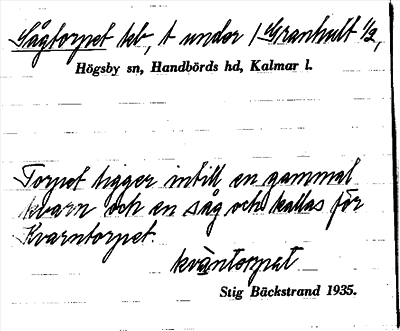 Sågtorpet lsb, t under 1 Granhult 1/2,
Högsby sn, Handbörds hd, Kalmar l.
Torpet ligger intill en gammal
kvarn och en såg och kallas för
Kvarntorpet.
kväntorpet
Stig Bäckstrand 1935.